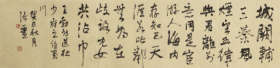 城闕輔
三秦風
煙望五津
與君離別
意同是宦
遊人海内
存知己天
涯若比鄰
無為在
歧路兒女
共沾巾
王勃送杜
少府之任蜀
川
秋月
書